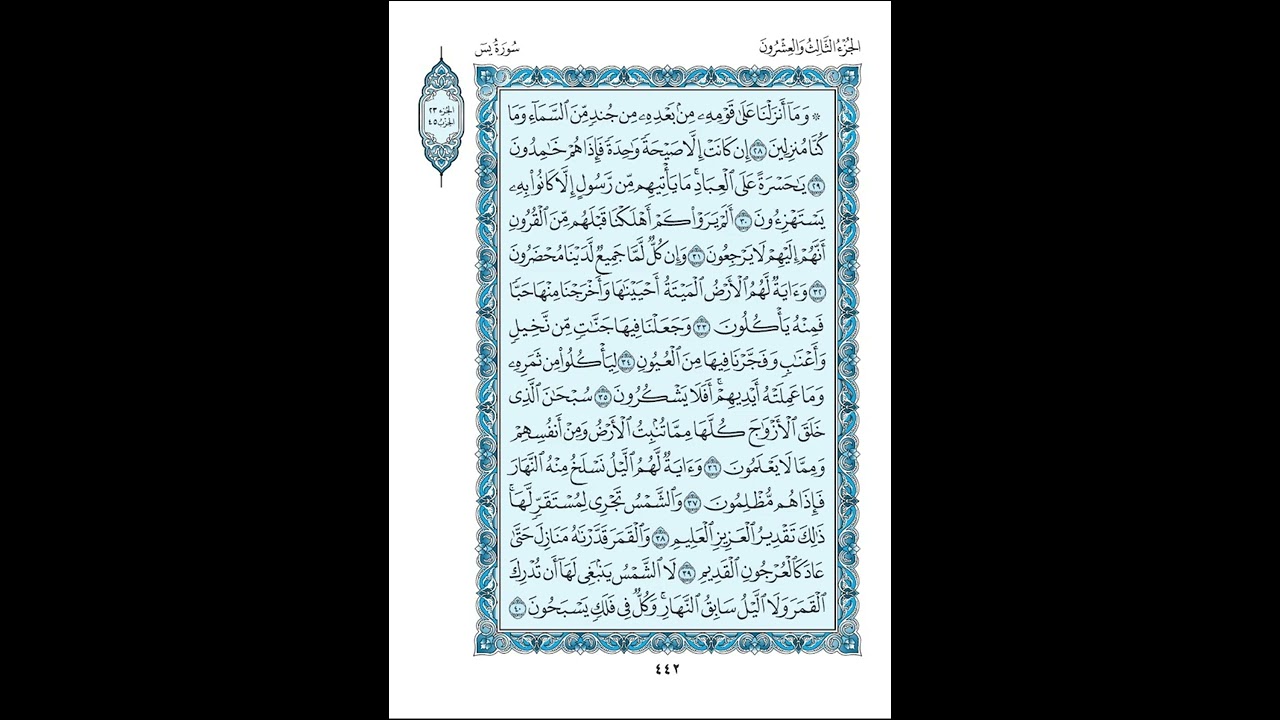 الجُزْءُ الثَّالِثُ وَالعِشْرُونَ
سُورَةُ يسٓ
الجزء ٢٣
الحزب ٤٥
۞ وَمَآ أَنزَلْنَا عَلَىٰ قَوْمِهِۦ مِنۢ بَعْدِهِۦ مِن جُندٍ مِّنَ ٱلسَّمَآءِ وَمَا
كُنَّا مُنزِلِينَ ٢٨ إِن كَانَتْ إِلَّا صَيْحَةً وَٰحِدَةً فَإِذَا هُمْ خَٰمِدُونَ
٢٩ يَٰحَسْرَةً عَلَى ٱلْعِبَادِ ۚ مَا يَأْتِيهِم مِّن رَّسُولٍ إِلَّا كَانُوا۟ بِهِۦ
يَسْتَهْزِءُونَ ٣٠ أَلَمْ يَرَوْا۟ كَمْ أَهْلَكْنَا قَبْلَهُم مِّنَ ٱلْقُرُونِ
أَنَّهُمْ إِلَيْهِمْ لَا يَرْجِعُونَ ٣١ وَإِن كُلٌّ لَّمَّا جَمِيعٌ لَّدَيْنَا مُحْضَرُونَ
٣٢ وَءَايَةٌ لَّهُمُ ٱلْأَرْضُ ٱلْمَيْتَةُ أَحْيَيْنَٰهَا وَأَخْرَجْنَا مِنْهَا حَبًّا
فَمِنْهُ يَأْكُلُونَ ٣٣ وَجَعَلْنَا فِيهَا جَنَّٰتٍ مِّن نَّخِيلٍ
وَأَعْنَٰبٍ وَفَجَّرْنَا فِيهَا مِنَ ٱلْعُيُونِ ٣٤ لِيَأْكُلُوا۟ مِن ثَمَرِهِۦ
وَمَا عَمِلَتْهُ أَيْدِيهِمْ ۖ أَفَلَا يَشْكُرُونَ ٣٥ سُبْحَٰنَ ٱلَّذِى
خَلَقَ ٱلْأَزْوَٰجَ كُلَّهَا مِمَّا تُنۢبِتُ ٱلْأَرْضُ وَمِنْ أَنفُسِهِمْ
وَمِمَّا لَا يَعْلَمُونَ ٣٦ وَءَايَةٌ لَّهُمُ ٱلَّيْلُ نَسْلَخُ مِنْهُ ٱلنَّهَارَ
فَإِذَا هُم مُّظْلِمُونَ ٣٧ وَٱلشَّمْسُ تَجْرِى لِمُسْتَقَرٍّ لَّهَا ۚ
ذَٰلِكَ تَقْدِيرُ ٱلْعَزِيزِ ٱلْعَلِيمِ ٣٨ وَٱلْقَمَرَ قَدَّرْنَٰهُ مَنَازِلَ حَتَّىٰ
عَادَ كَٱلْعُرْجُونِ ٱلْقَدِيمِ ٣٩ لَا ٱلشَّمْسُ يَنۢبَغِى لَهَآ أَن تُدْرِكَ
ٱلْقَمَرَ وَلَا ٱلَّيْلُ سَابِقُ ٱلنَّهَارِ ۚ وَكُلٌّ فِى فَلَكٍ يَسْبَحُونَ ٤٠
٤٤٢